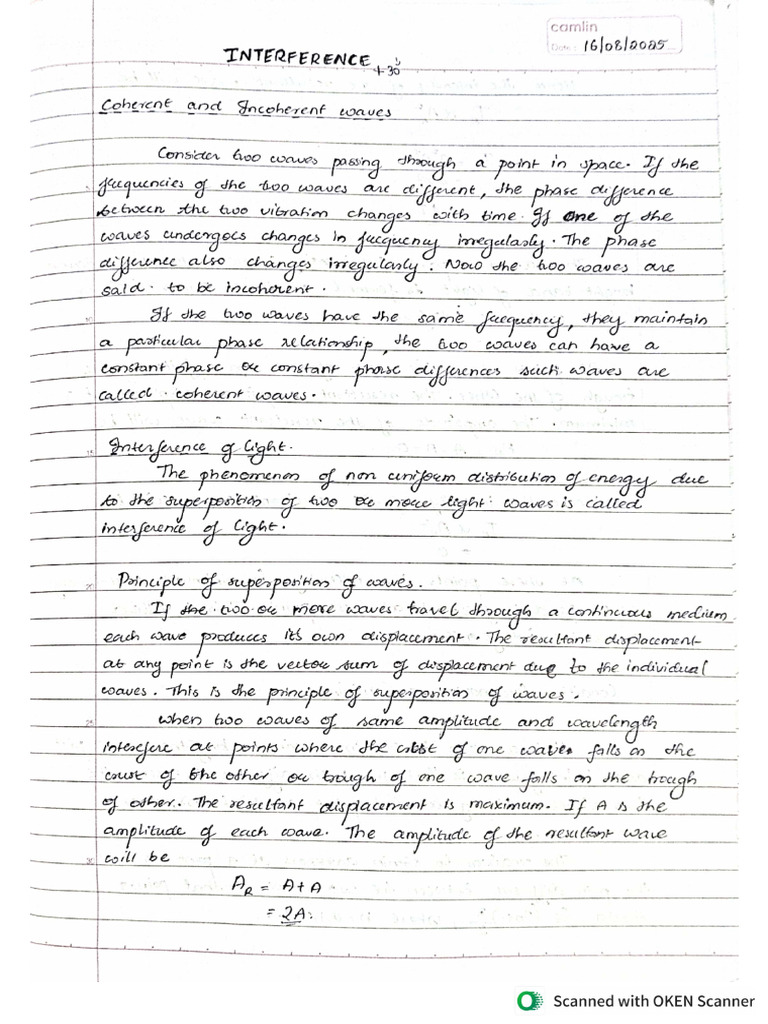 camlin
Date: 16/08/2025
INTERFERENCE
Coherent and Incoherent waves
Consider two waves passing through a point in space. If the
frequencies of the two waves are different, the phase difference
between the two vibration changes with time. If one of the
waves undergoes changes in frequency irregularly. The phase
difference also changes irregularly. Now the two waves are
said to be incoherent.
If the two waves have the same frequency, they maintain
a particular phase relationship, the two waves can have a
constant phase or constant phase differences such waves are
called coherent waves.
Interference of light.
The phenomenon of non uniform distribution of energy due
to the superposition of two or more light waves is called
interference of light.
Principle of superposition of waves.
If the two or more waves travel through a continuous medium
each wave produces its own displacement. The resultant displacement
at any point is the vector sum of displacement due to the individual
waves. This is the principle of superposition of waves.
When two waves of same amplitude and wavelength
interfere at points where the crest of one waves falls on the
crust of the other or trough of one wave falls on the trough
of other. The resultant displacement is maximum. If A is the
amplitude of each wave. The amplitude of the resultant wave
will be
A_R = A+A
= 2A.
Scanned with OKEN Scanner